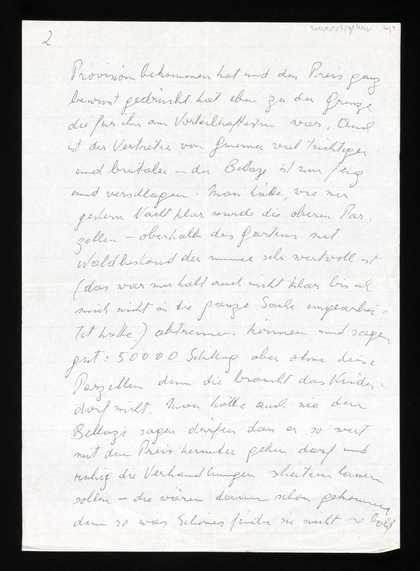 2
Provision bekommen hat und den Preis ganz
bewusst gedrückt hat eben zu der Grenze
die für ihn am Vorteilhaftesten war. Und
ist der Vertreter von viel tüchtiger
und brutaler – der ist nur feig
und verschlagen. Man hätte, wie mir
gestern Nacht klar wurde die oberen Par-
zellen – oberhalb des Gartens mit
Waldbestand der immer sehr wertvoll ist
(das war mir halt auch nicht klar bis ich
mich nicht in die ganze Sache eingearbei-
tet hatte) abtrennen können und sagen
gut: 50000 Schilling aber ohne diese
Parzellen denn die braucht das Kinder-
dorf nicht. Man hätte auch nie dem
sagen dürfen dass er so weit
mit dem Preis herunter gehen darf und
ruhig die Verhandlungen scheitern lassen
sollen – die wären dann schon gekommen
denn so was Schönes finden sie nicht so bald